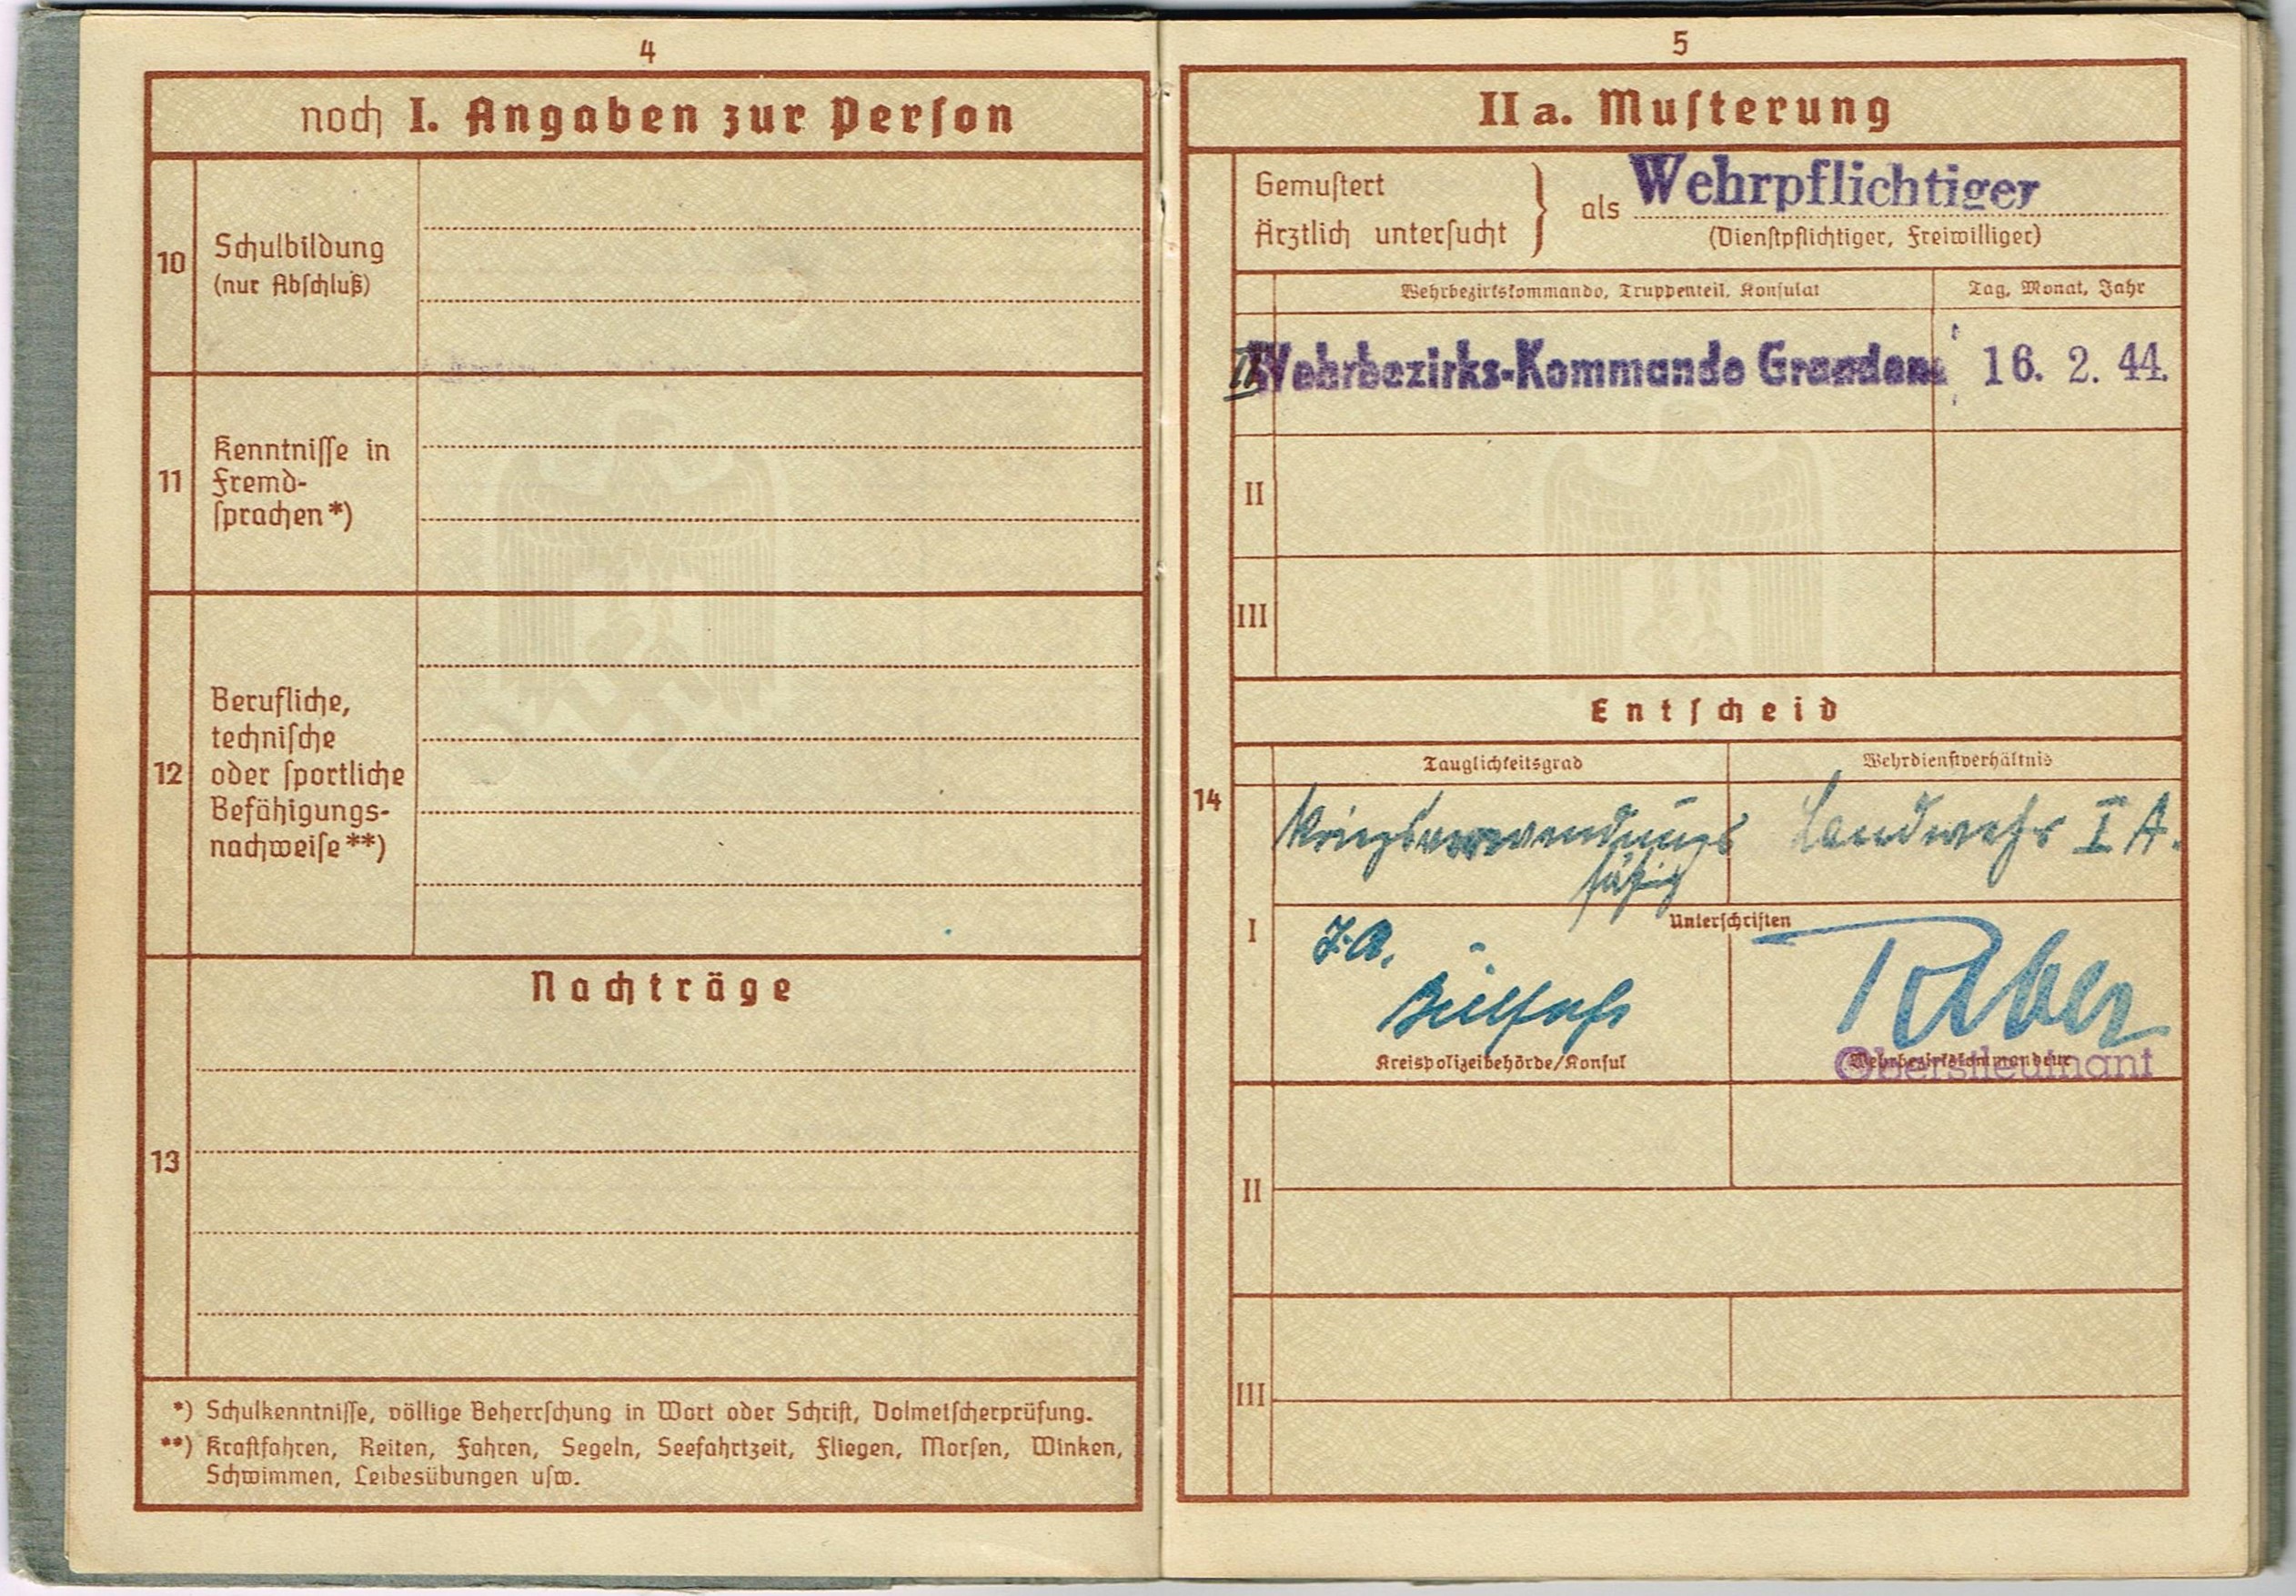 4
noch I. Angaben zur Person
10
Schulbildung
(nur Abschluß)
11
Kenntnisse in
Fremd-
sprachen *)
12
Berufliche,
technische
oder sportliche
Befähigungs-
nachweise **)
Nachträge
13
*) Schulkenntnisse, völlige Beherrschung in Wort oder Schrift, Dolmetscherprüfung.
**) Kraftfahren, Reiten, Fahren, Segeln, Seefahrtzeit, Fliegen, Morsen, Winken,
Schwimmen, Leibesübungen usw.
5
II a. Musterung
Gemustert
Ärztlich untersucht
als Wehrpflichtiger
(Dienstpflichtiger, Freiwilliger)
Wehrbezirkskommando, Truppenteil, Konsulat
Tag, Monat, Jahr
Wehrbezirks-Kommando Graudenz 16. 2. 44.
II
III
Entscheid
14
Tauglichkeitsgrad
Wehrdienstverhältnis
Kriegsverwendungs
fähig
Landwehr I A.
I
Unterschriften
I.A.
Kreispolizeibehörde/Konsul
Wehrbezirkskommandeur
Oberstleutnant
II
III